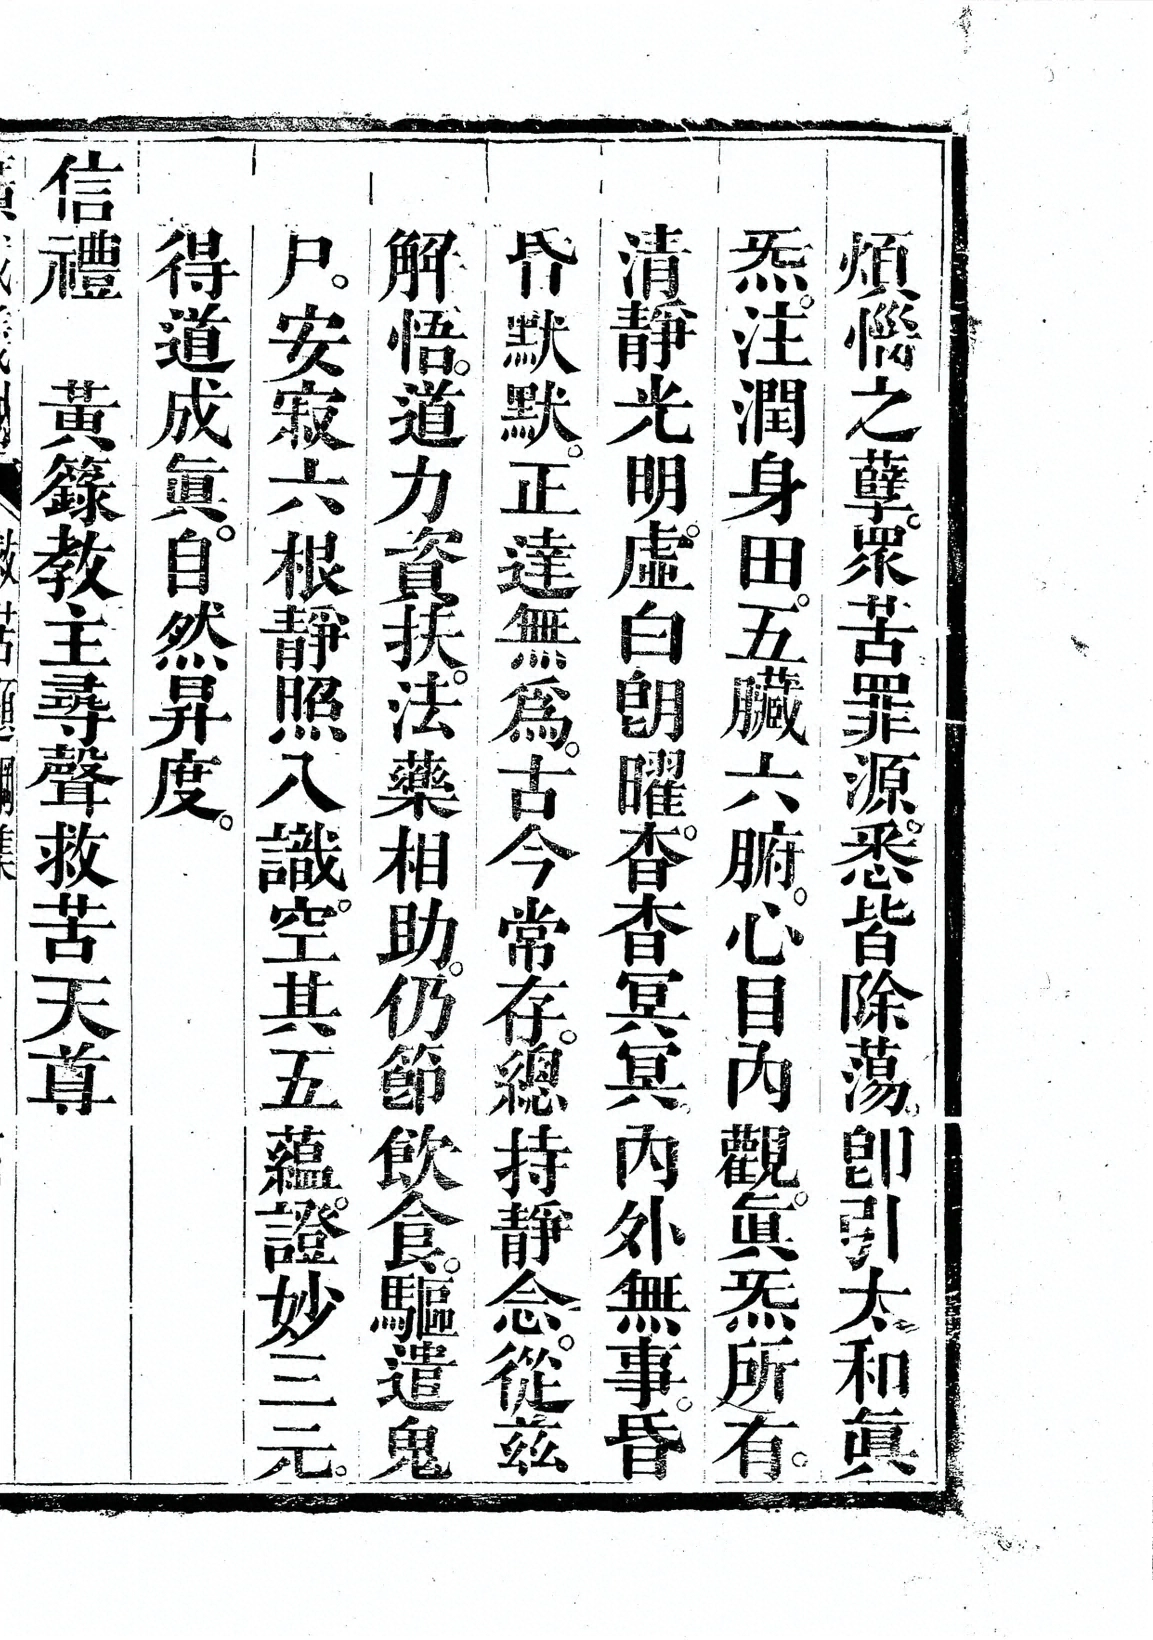 煩惱之孽。眾苦罪源。悉皆除蕩。卽引太和眞
炁。注潤身田。五臟六腑。心目內觀。眞炁所有。
清靜光明。虛白朗曜。杳杳冥冥。內外無事。昏
昏默默。正達無爲。古今常存。總持靜念。從茲
解悟。道力資扶。法藥相助。仍節飲食。驅遣鬼
尸。安寂六根。靜照八識。空其五蘊。證妙三元。
得道成眞。自然昇度。
信禮　黃籙教主尋聲救苦天尊